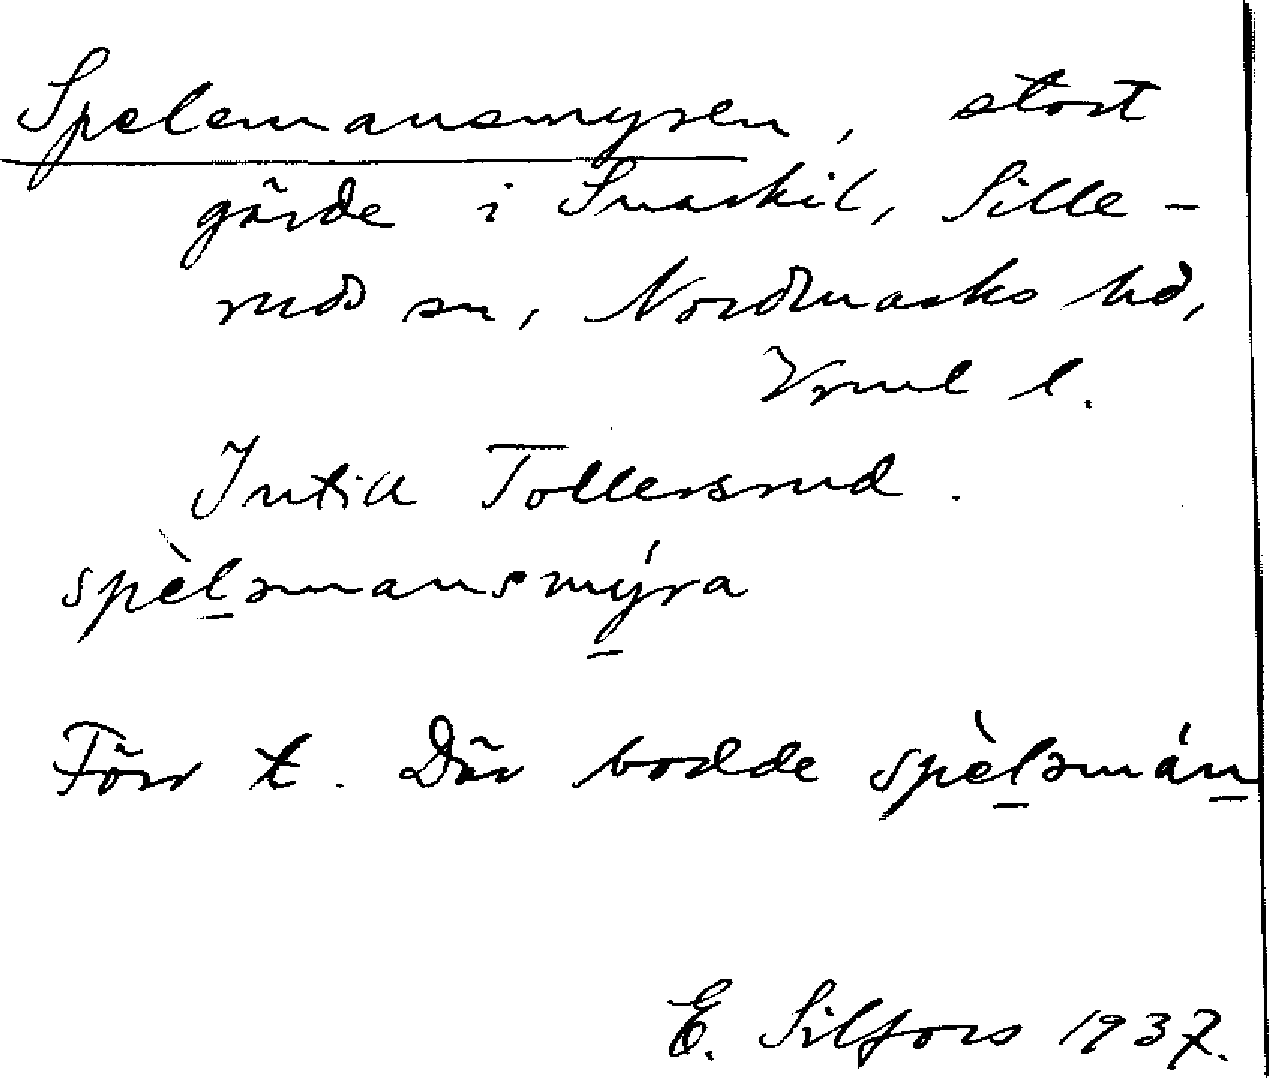 Spelemansmyren, stort
gärde i Snarkil, Sille-
ruds sn, Nordmarks hd,
Vrml l.
Intill Tollersrud.
spèlәmansmýra
Förr t. Där bodde spèlәmán
E. Silfors 1937.